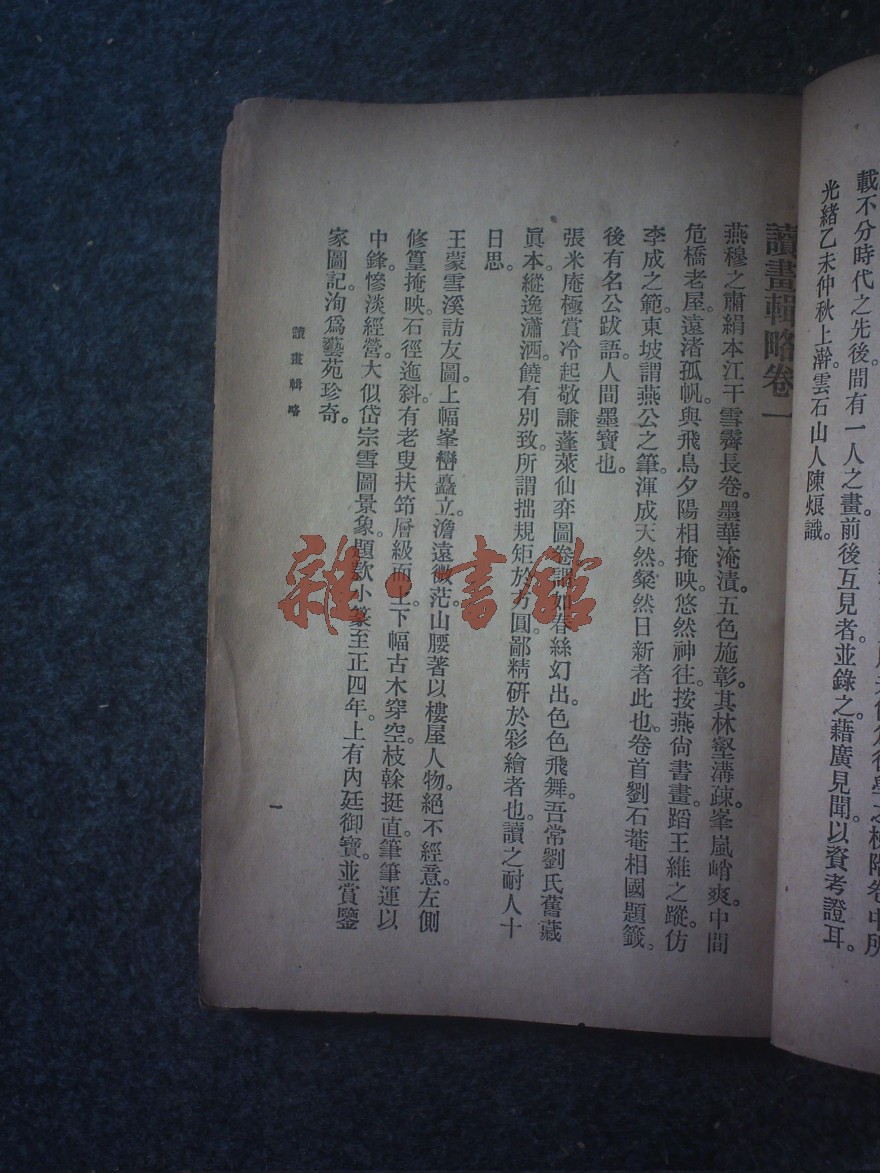 載不分時代之先後間有一人之畫前後互見者並錄之藉廣見聞以資考證耳。
光緒乙未仲秋上澣。雲石山人陳烺識。
讀畫輯略卷一
燕穆之肅絹本江干雪霽長卷。墨華淹漬。五色施彰。其林壑溝疎。峯嵐峭爽。中間
危橋老屋。遠渚孤帆。與飛鳥夕陽相掩映。悠然神往。按燕尚書畫。蹈王維之蹤。仿
李成之範。東坡謂燕公之筆。渾成天然。粲然日新者此也。卷首劉石菴相國題籤。
後有名公跋語。人間墨寶也。
張米庵極賞冷起敬謙蓬萊仙弈圖卷。謂如春絲幻出。色色飛舞。吾常劉氏舊藏
眞本。縱逸瀟洒。饒有別致。所謂拙規矩於方圓。鄙精研於彩繪者也。讀之耐人十
日思。
王蒙雪溪訪友圖。上幅峯巒矗立。澹遠微茫。山腰著以樓屋人物。絕不經意。左側
修篁掩映。石徑迤斜。有老叟扶筇層級而上。下幅古木穿空。枝榦挺直。筆筆運以
中鋒。慘淡經營。大似岱宗雪圖景象。題款小篆。至正四年。上有內廷御寶。並賞鑒
家圖記。洵爲藝苑珍奇。
讀畫輯略
一
雜·書館